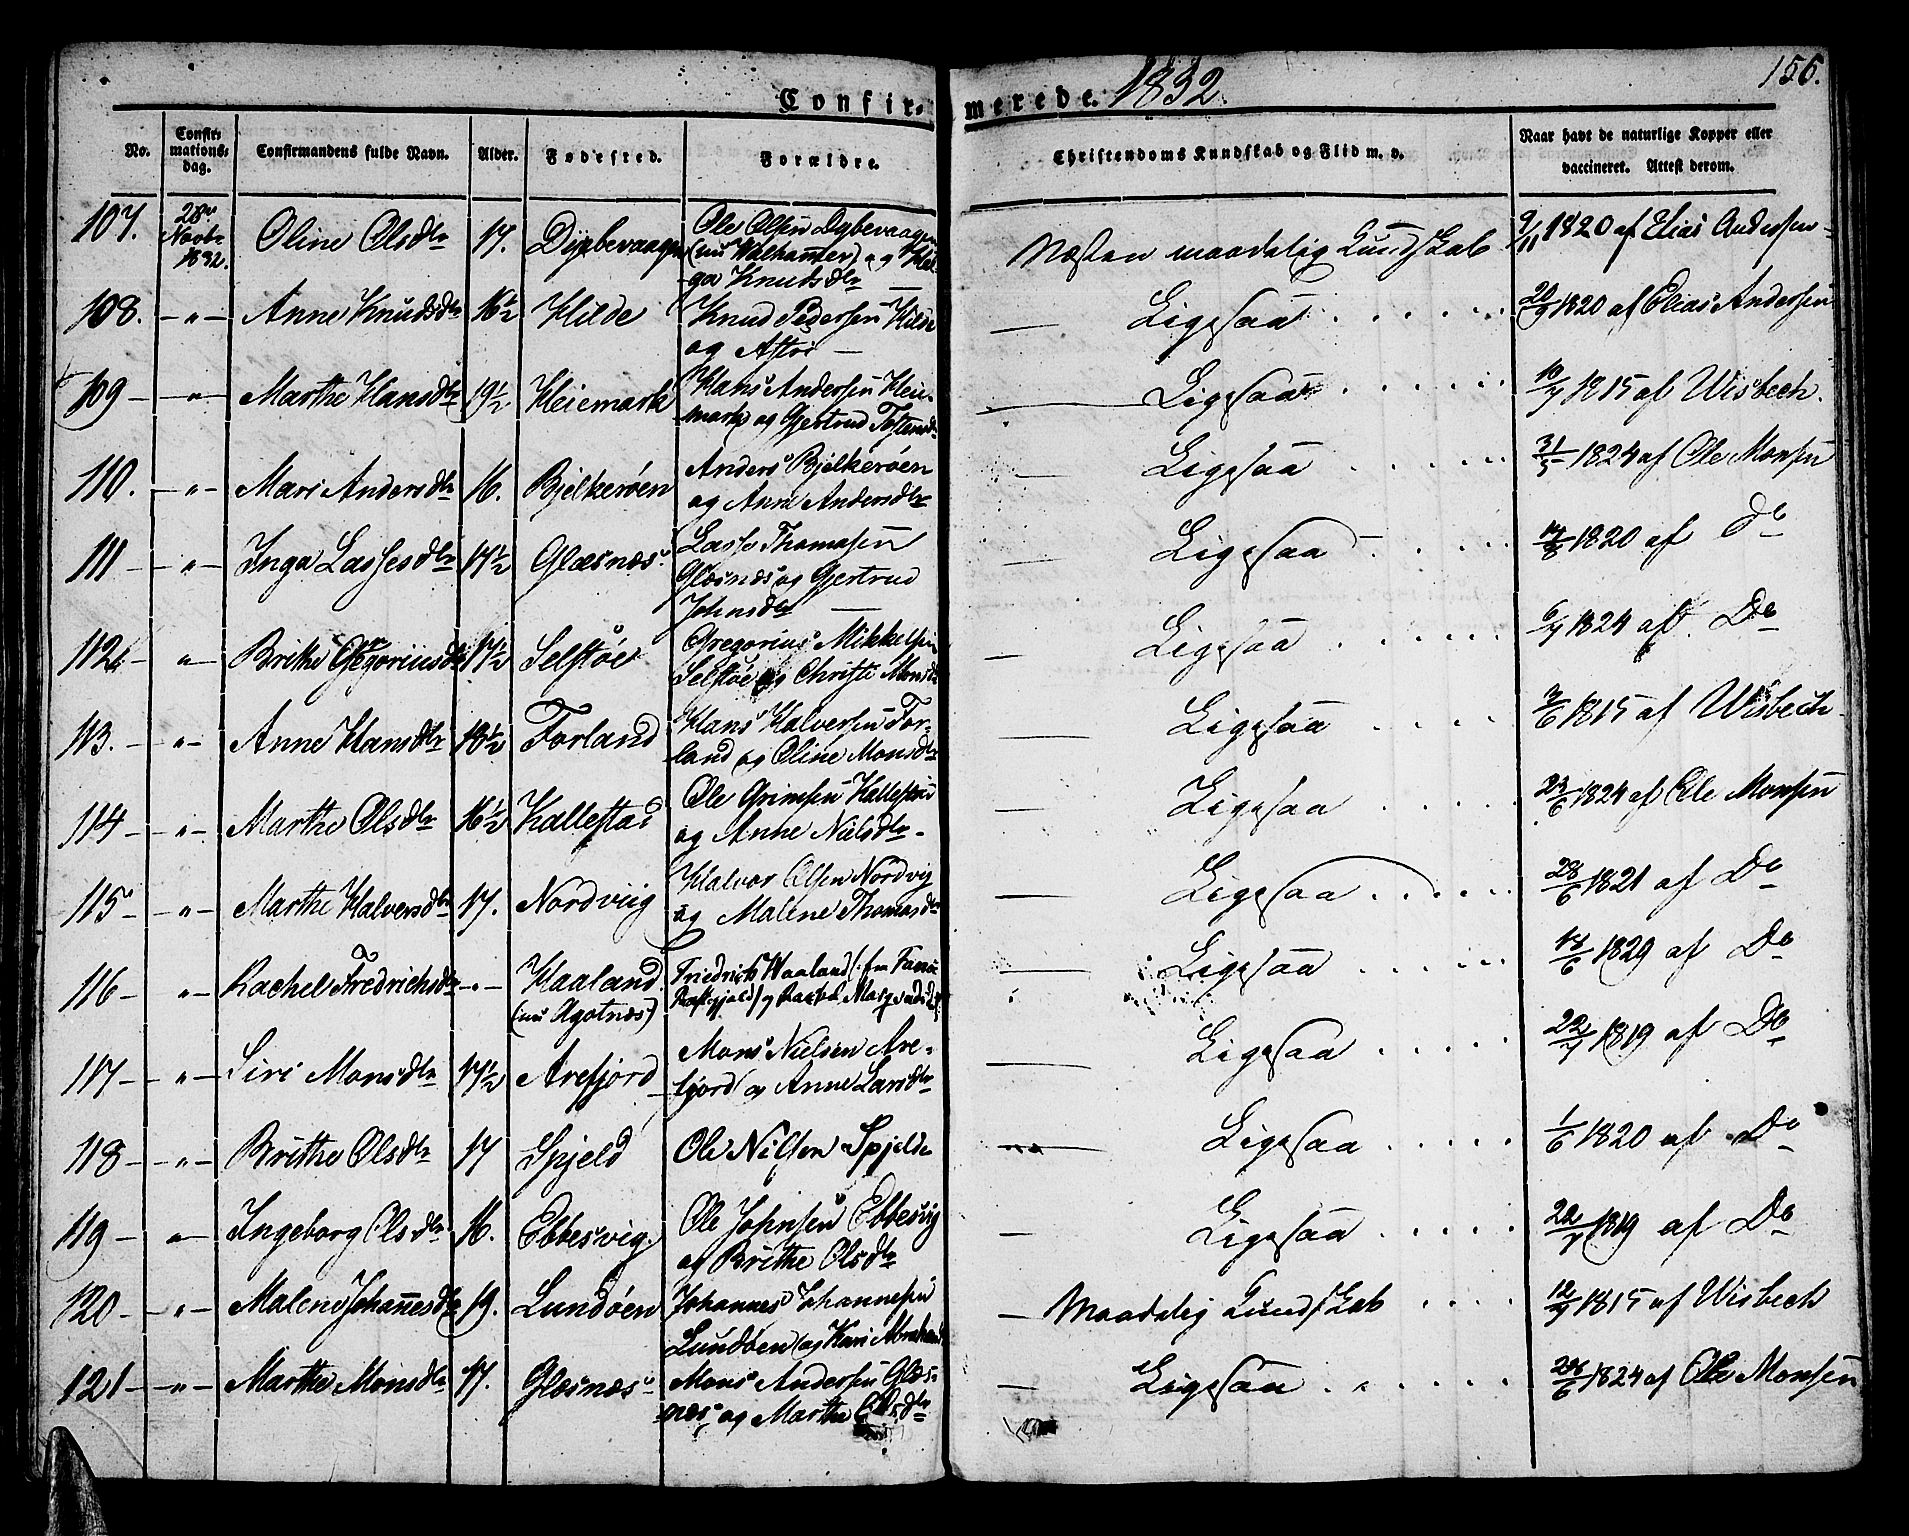 Confirmerede. 1832. 156.
No. Confirmationsdag. Confirmandens fulde Navn. Alder. Fødested. Forældre. Christendoms Kundskab og Flid m. v. Naar havt de naturlige Kopper eller vaccineret. Attest derom.
107. 28de Novbr 1832. Oline Olsdtr 17. Dybevaagen Ole Olsen Dybevaagen (nu Walhammer) og Hel- 
ga Knudsdtr Næsten maadelig Kundskab 9/11 1820 af Elias Andersen
108. -"- Anne Knudsdtr 16½ Kilde Knud Pedersen Kilde
og Astri — — Ligesaa 20/9 1820 af Elias Andersen
109 -"- Marthe Hansdtr 19½ Heiemark Hans Andersen Hei-
mark og Gjertrud Tostensdtr — Ligesaa 10/7 1815 af Wisbech.
110. -"- Mari Andersdtr 16. Bjelkerøen Anders Bjelkerøen
og Anne Andersdtr — Ligesaa 31/5 1824 af Ole Monsen
111 -"- Inga Lassesdtr 17½ Glæsnæs Lasse Thomasen
Glæsnæs og Gjertrud
Johnsdtr — Ligesaa 14/8 1820 af Do
112 -"- Brithe Gregoriusdtr 17½ Selstøe Gregorius Mikkelsen
Selstøe og Christi Monsdtr — Ligesaa 6/7 1824 af Do
113. -"- Anne Hansdtr 18½ Forland Hans Halversen For-
land og Oline Monsdtr — Ligesaa 3/6 1815 af Wisbech
114 -"- Marthe Olsdtr 16½ Kallestad Ole Grimsen Kallestad
og Anne Nielsdtr — Ligesaa 23/6 1824 af Ole Monsen
115 -"- Marthe Halversdtr 17. Nordviig Halvor Olsen Nordvig
og Malene Thomasdtr — Ligesaa 28/6 1821 af Do
116 -"- Rachel Fredrichsdtr -"- Haaland
(nu Agotnæs) Friedrich Haaland — Ligesaa 18/6 1829 af Do
117 -"- Siri Monsdtr 17½ Arefjord Mons Nielsen Are-
fjord og Anne Larsdtr — Ligesaa 22/7 1819 af Do
118 -"- Brithe Olsdtr 17 Spjeld Ole Nilsen Spjeld — Ligesaa 1/6 1820 af Do
119 -"- Ingeborg Olsdtr 16. Ebbesvig. Ole Johnsen Ebbesvig
og Brithe Olsdtr — Ligesaa 22/7 1819 af Do
120 -"- Malene Johannesdtr 19. Lundøen Johannes Johannesen
Lundøen og Kari — Maadelig Kundskab 12/7 1815 af Wisbech
121 -"- Marthe Monsdtr 17. Glæsnæs Mons Andersen Glæs-
næs og Marthe Olsdtr — Ligesaa 24/6 1824 af Ole Monsen